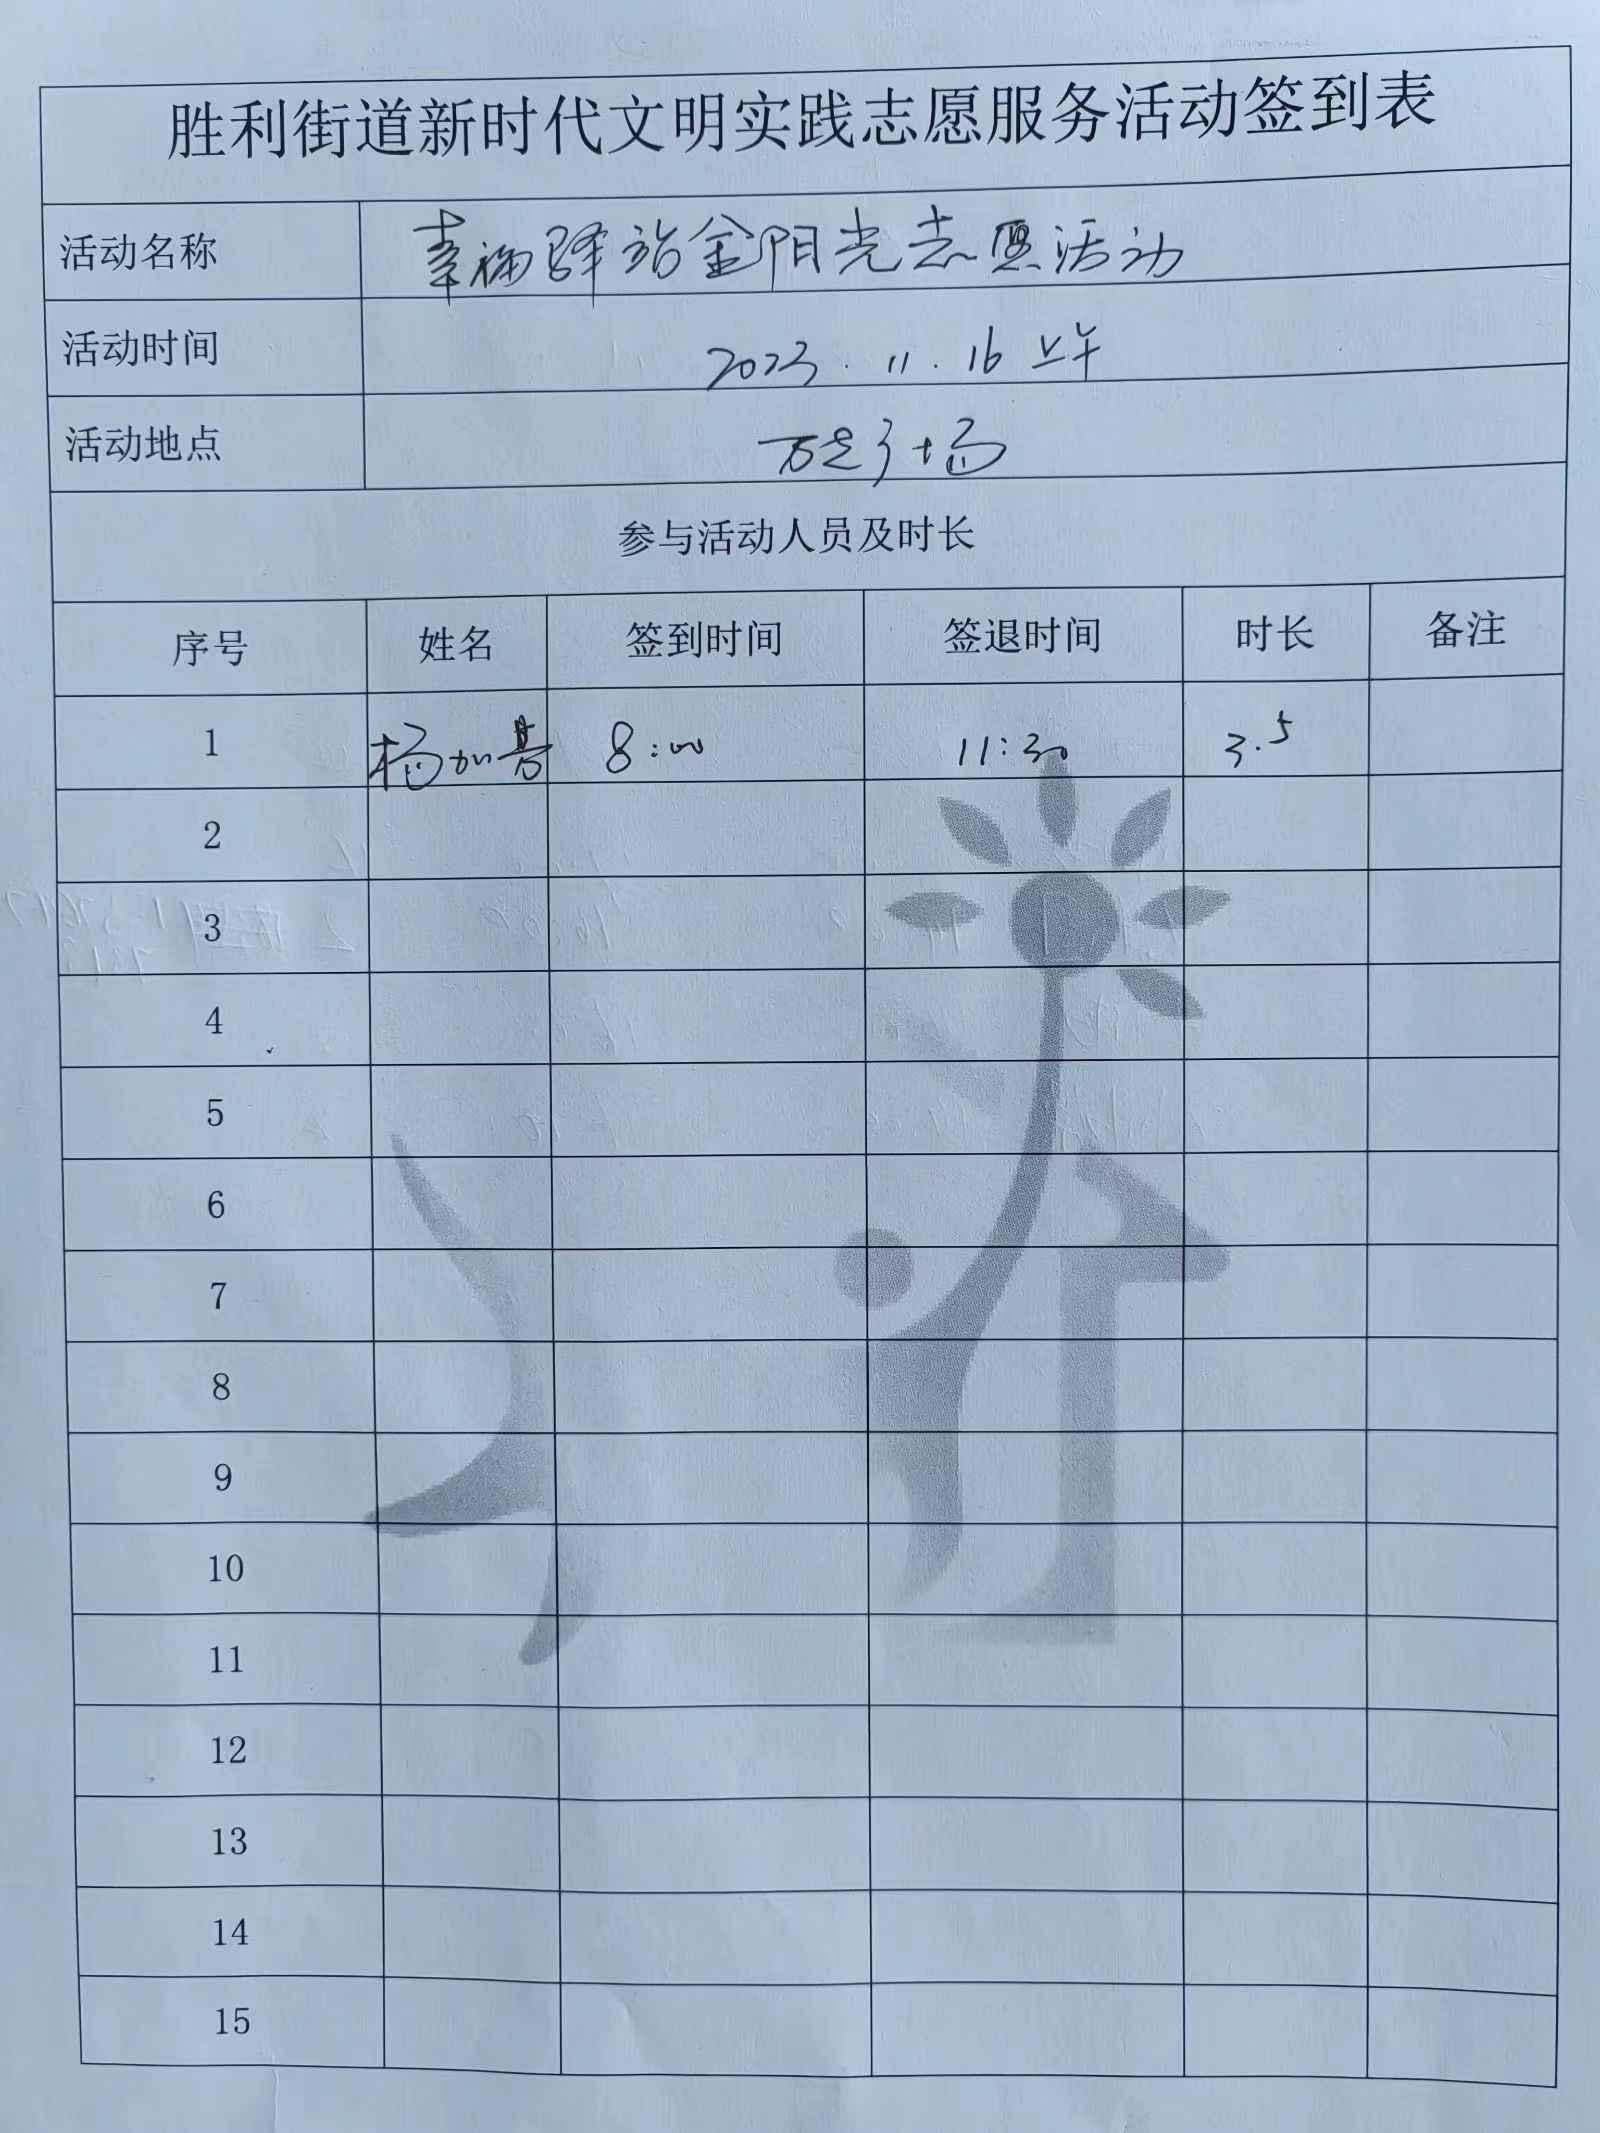 胜利街道新时代文明实践志愿服务活动签到表
活动名称 幸福驿站金阳光志愿活动
活动时间 2023.11.16上午
活动地点 万达广场
参与活动人员及时长
序号 姓名 签到时间 签退时间 时长 备注
1 杨加 8:00 11:30 3.5
2
3
4
5
6
7
8
9
10
11
12
13
14
15